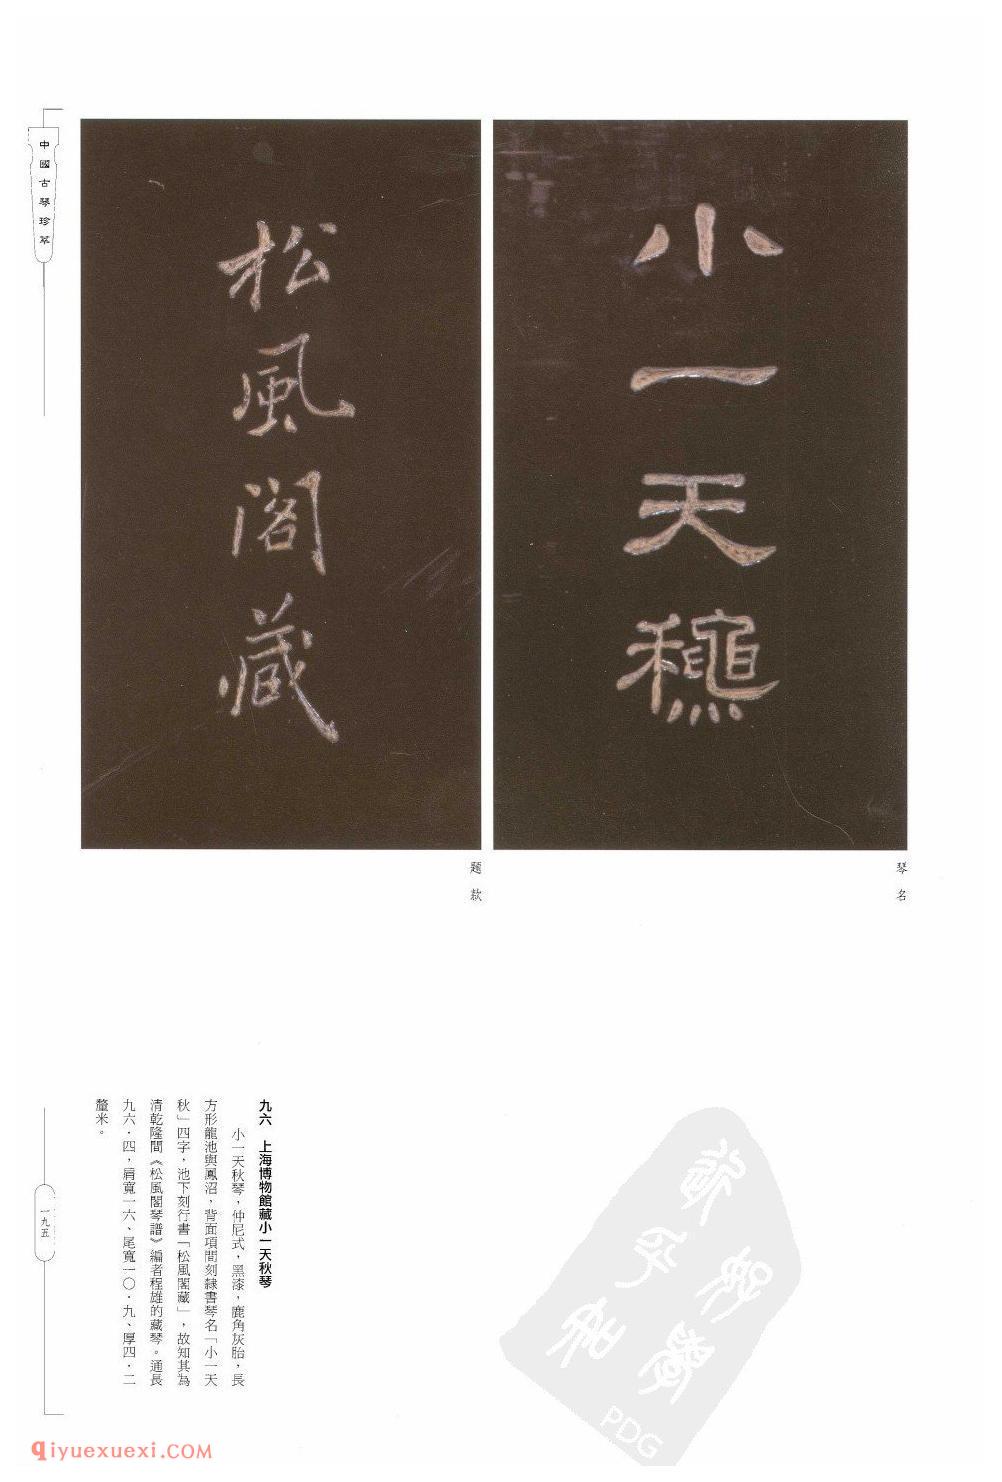 中國古琴珍萃
小一天穐
琴名
松風閣藏
題款
九六　上海博物館藏小一天秋琴
小一天秋琴，仲尼式，黑漆，鹿角灰胎，長
方形龍池與鳳沼，背面項間刻隸書琴名「小一天
秋」四字，池下刻行書「松風閣藏」，故知其為
清乾隆間《松風閣琴譜》編者程雄的藏琴。通長
九六·四，肩寬一六、尾寬一〇·九、厚四·二
釐米。
一九五
PDG
qiyuexuexi.com